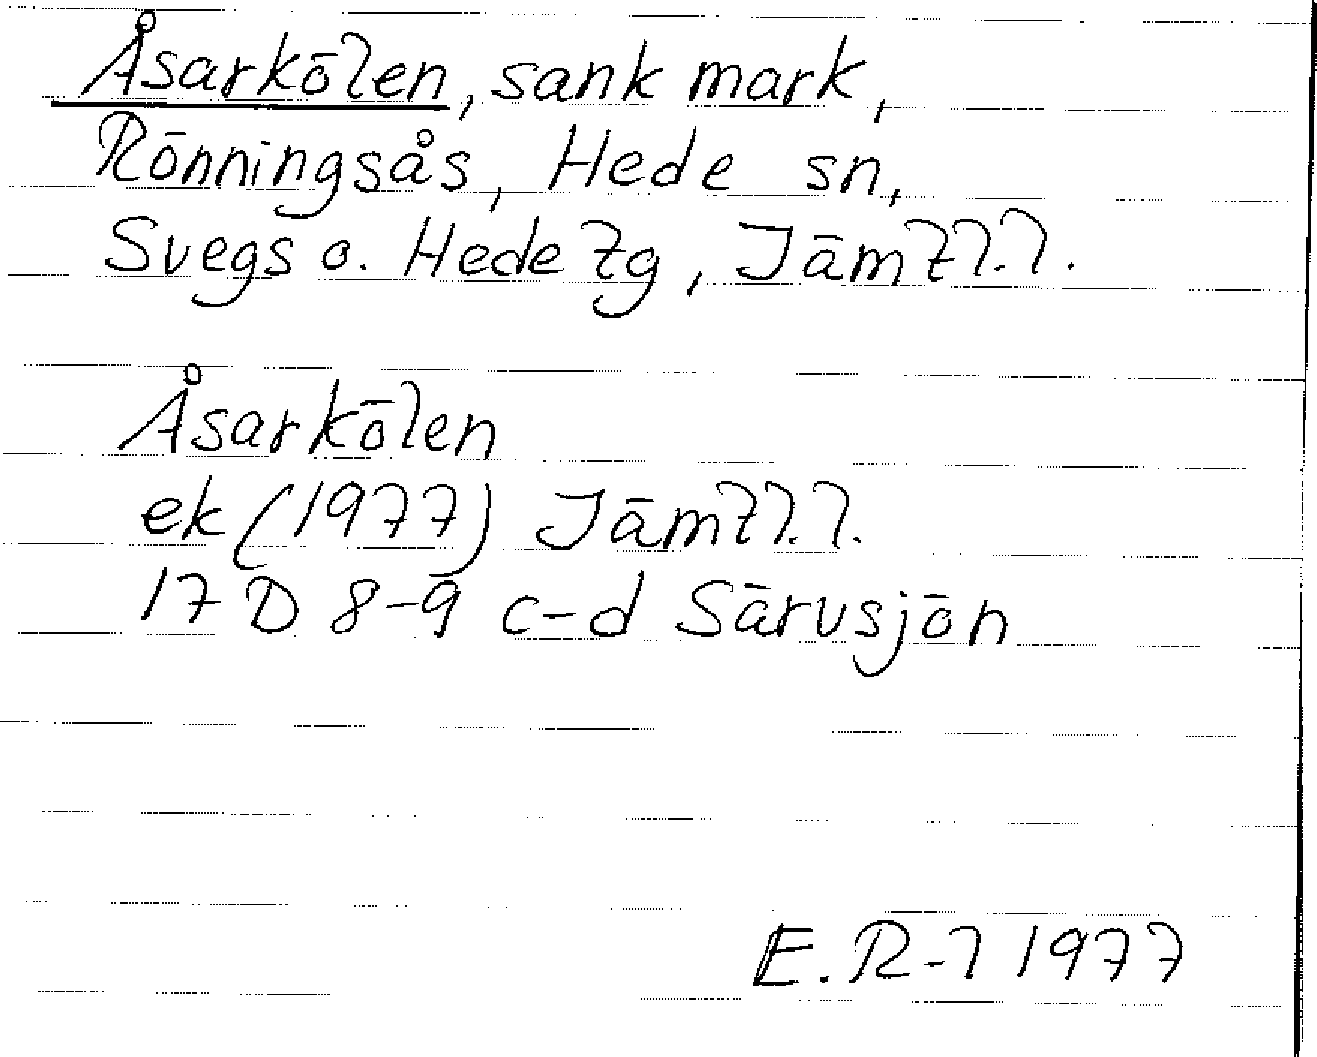 Åsarkölen, sank mark,
Rönningsås, Hede sn,
Svegs o. Hede tg, Jämtl. l.
Åsarkölen
ek (1977) Jämtl. l.
17 D 8-9 c-d Särvsjön
E. R-l 1977